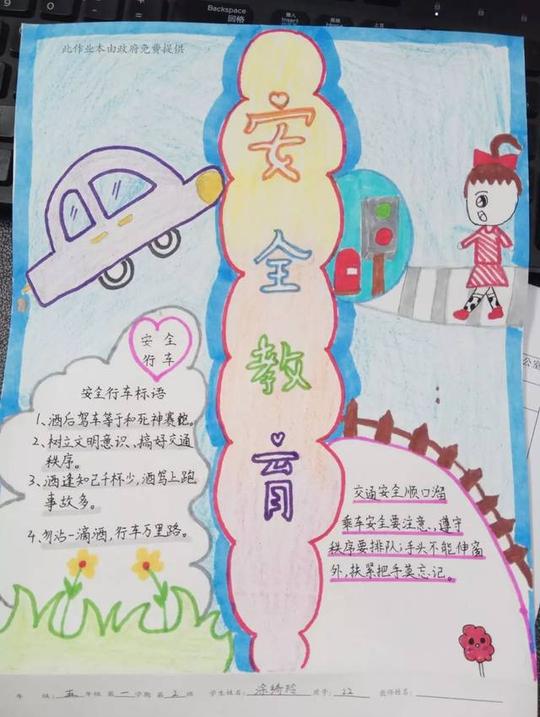 Backspace
回格
Insert
此作业本由政府免费提供
安
全
教
育
安 全
行 车
安全行车标语
1、酒后驾车等于和死神赛跑。
2、树立文明意识、搞好交通
秩序。
3、酒逢知己千杯少,酒驾上跑
事故多。
4、勿沾一滴酒,行车万里路。
交通安全顺口溜
乘车安全要注意,遵守
秩序要排队;手头不能伸窗
外,扶紧把手莫忘记。
年 级:五 年级 第 一 学期 第 2 班 学生姓名:涂绮玲 班学:22 教师姓名: